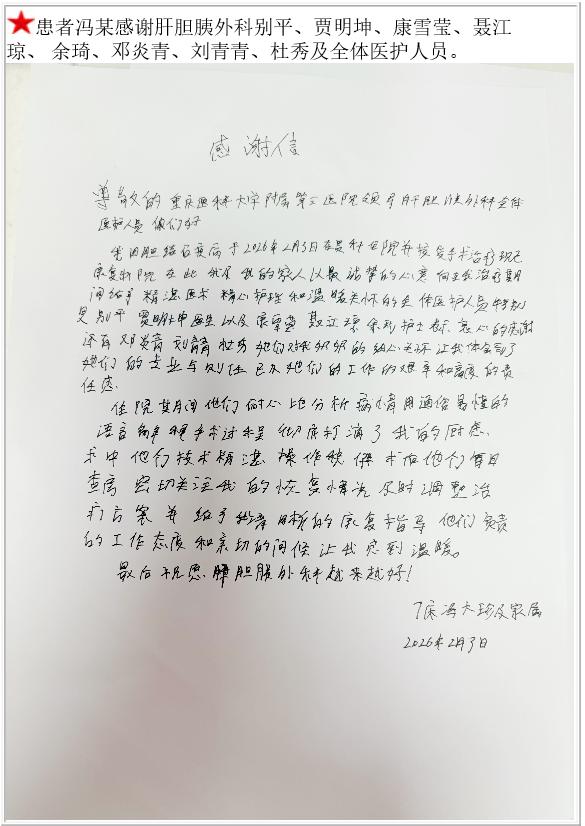 患者冯某感谢肝胆胰外科别平、贾明坤、康雪莹、聂江
琼、 余琦、邓炎青、刘青青、杜秀及全体医护人员。
感谢信
尊敬的重庆医科大学附属第三医院领导肝胆胰外科全体
医护人员 你们好
我因胆结石疾病于2026年2月3日在贵科住院并接受手术治疗现已
康复出院 在此 我及我的家人以最诚挚的心意 向在我治疗期
间给予精湛医术 精心护理和温暖关怀的全体医护人员 特别
是别平 贾明坤医生以及康雪莹 聂江琼 余琦护士 表 衷心的感谢
还有 邓炎青 刘青青 杜秀 她们对我 的细心关怀 让我体会到了
她们的专业与 任 以及她们的工作的艰辛和高度的责
任感。
住院期间他们耐心地分析病情用通俗易懂的
语言解释手术过程 彻底打消了我的顾虑。
术中他们技术精湛 操作 术后他们每日
查房 密切关注我的恢复情况 及时调整治
疗方案 并给予我清晰的康复指导 他们负责
的工作态度和亲切的问候 让我感到温暖。
最后祝愿 肝胆胰外科越来越好!
7床冯 及家属
2026年2月 日